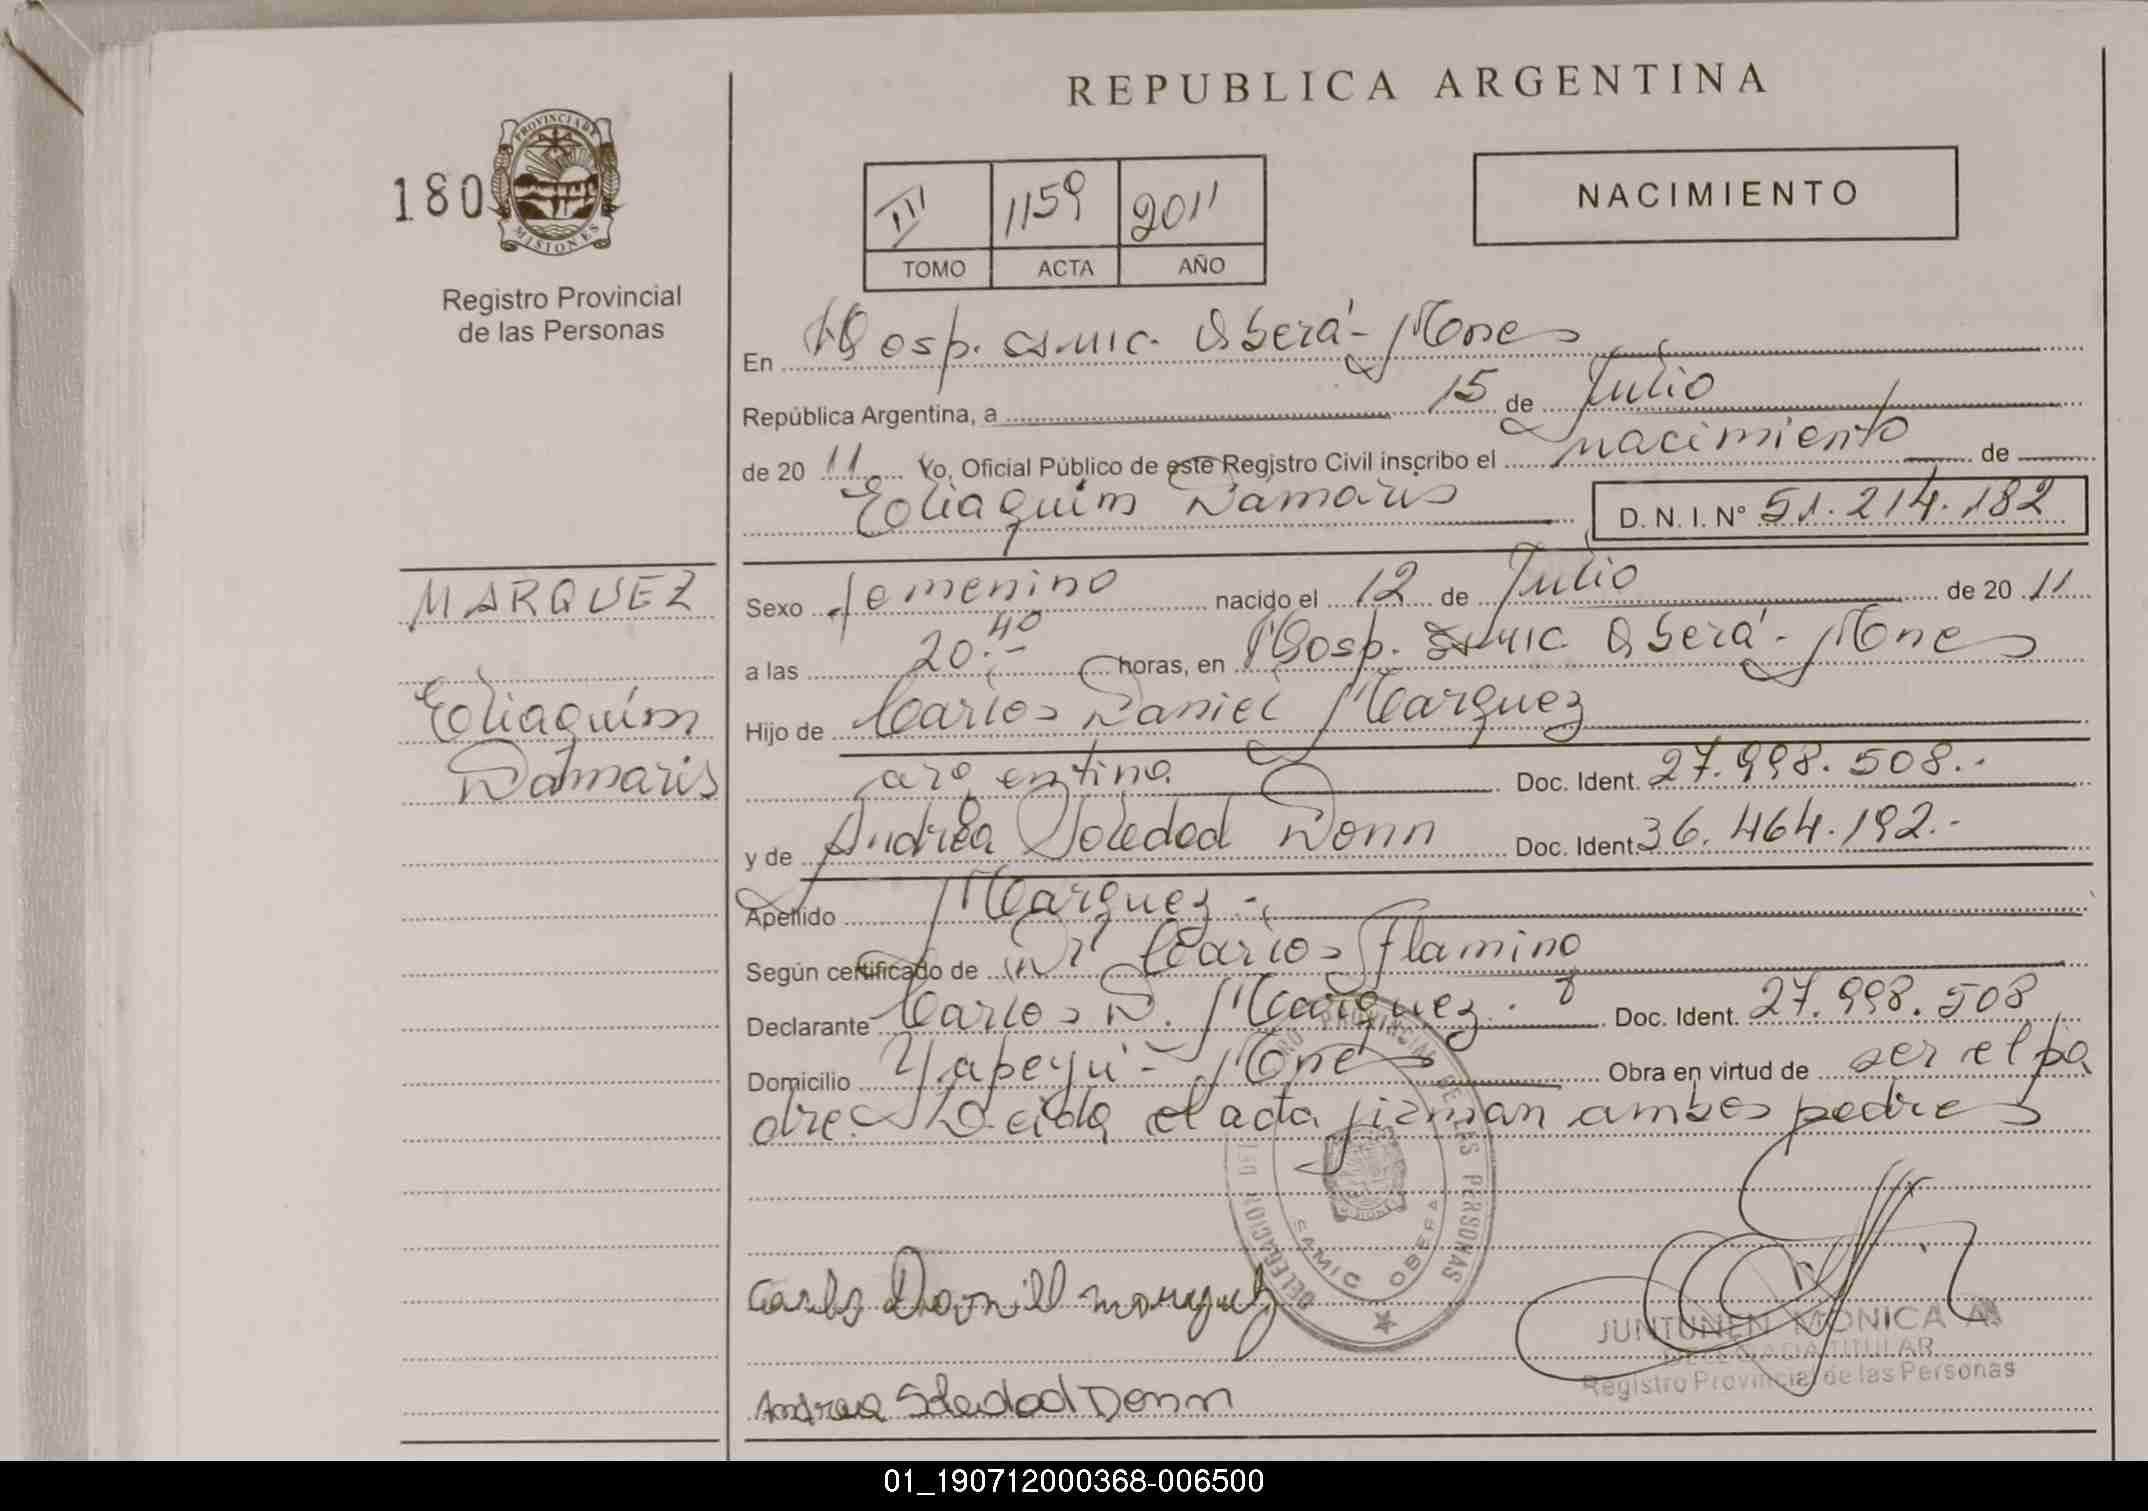 REPUBLICA ARGENTINA
180
PROVINCIA DE
MISIONES
Registro Provincial
de las Personas
III 1159 2011
TOMO ACTA AÑO
NACIMIENTO
En Hosp. SAMIC. Oberá - Mnes
República Argentina, a 15 de Julio
de 20 11 Yo, Oficial Público de este Registro Civil inscribo el nacimiento de
Eliaquim Damaris D. N. I. N° 51.214.182
MARQUEZ
Eliaquim
Damaris
Sexo femenino nacido el 12 de Julio de 20 11
a las 20:40 horas, en Hosp. SAMIC Oberá - Mnes
Hijo de Carlos Daniel Marquez
argentina Doc. Ident. 27.998.508.-
y de Andrea Soledad Donn Doc. Ident. 36.464.192.-
Apellido Marquez -
Según certificado de Dr Carlos Flamino
Declarante Carlos D. Marquez. Doc. Ident. 27.998.508
Domicilio Yapeyú - Mnes Obra en virtud de ser el pa
dre. Leida el acta firman ambos padres
REGISTRO PROVINCIAL DE LAS PERSONAS
DELEGACION DEL
SAMIC OBERA
Carlos Daniel marquez
JUNTUNEN MONICA A.
DELEGADA TITULAR
Registro Provincial de las Personas
Andrea Soledad Donn
01_190712000368-006500